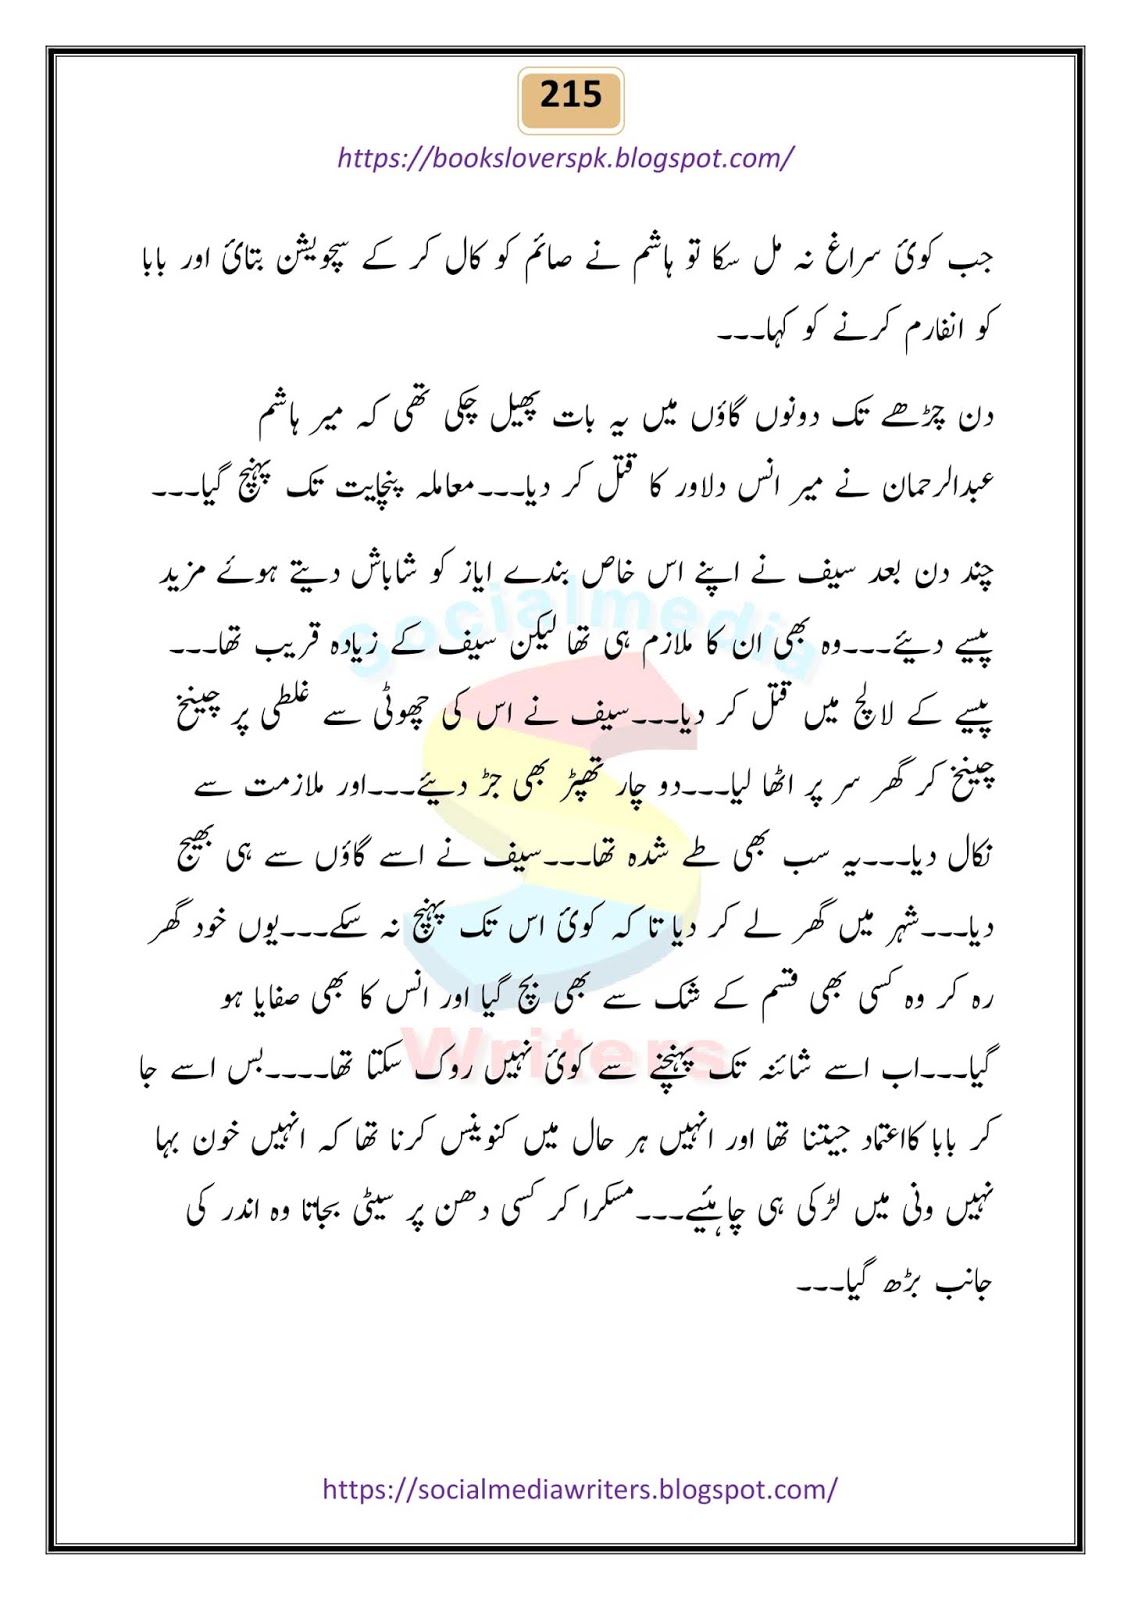 215
https://booksloverspk.blogspot.com/
جب کوئ سراغ نہ مل سکا تو ہاشم نے صائم کو کال کر کے سچویشن بتائ اور بابا
کو انفارم کرنے کو کہا۔۔۔
دن چڑھے تک دونوں گاؤں میں یہ بات پھیل چکی تھی کہ میر ہاشم
عبدالرحمان نے میر انس دلاور کا قتل کر دیا۔۔۔معاملہ پنچایت تک پہنچ گیا۔۔۔
چند دن بعد سیف نے اپنے اس خاص بندے ایاز کو شاباش دیتے ہوئے مزید
پیسے دیئے۔۔۔وہ بھی ان کا ملازم ہی تھا لیکن سیف کے زیادہ قریب تھا۔۔۔
پیسے کے لالچ میں قتل کر دیا۔۔۔سیف نے اس کی چھوٹی سے غلطی پر چینخ
چینخ کر گھر سر پر اٹھا لیا۔۔۔دو چار تھپڑ بھی جڑ دیئے۔۔۔اور ملازمت سے
نکال دیا۔۔۔یہ سب بھی طے شدہ تھا۔۔۔سیف نے اسے گاؤں سے ہی بھیج
دیا۔۔۔شہر میں گھر لے کر دیا تا کہ کوئ اس تک پہنچ نہ سکے۔۔۔یوں خود گھر
رہ کر وہ کسی بھی قسم کے شک سے بھی بچ گیا اور انس کا بھی صفایا ہو
گیا۔۔۔اب اسے شائنہ تک پہنچنے سے کوئ نہیں روک سکتا تھا۔۔۔۔بس اسے جا
کر بابا کااعتماد جیتنا تھا اور انہیں ہر حال میں کنوینس کرنا تھا کہ انہیں خون بہا
نہیں ونی میں لڑکی ہی چاہئیے۔۔۔مسکرا کر کسی دھن پر سیٹی بجاتا وہ اندر کی
جانب بڑھ گیا۔۔۔
Socialmedia
Writers
https://socialmediawriters.blogspot.com/